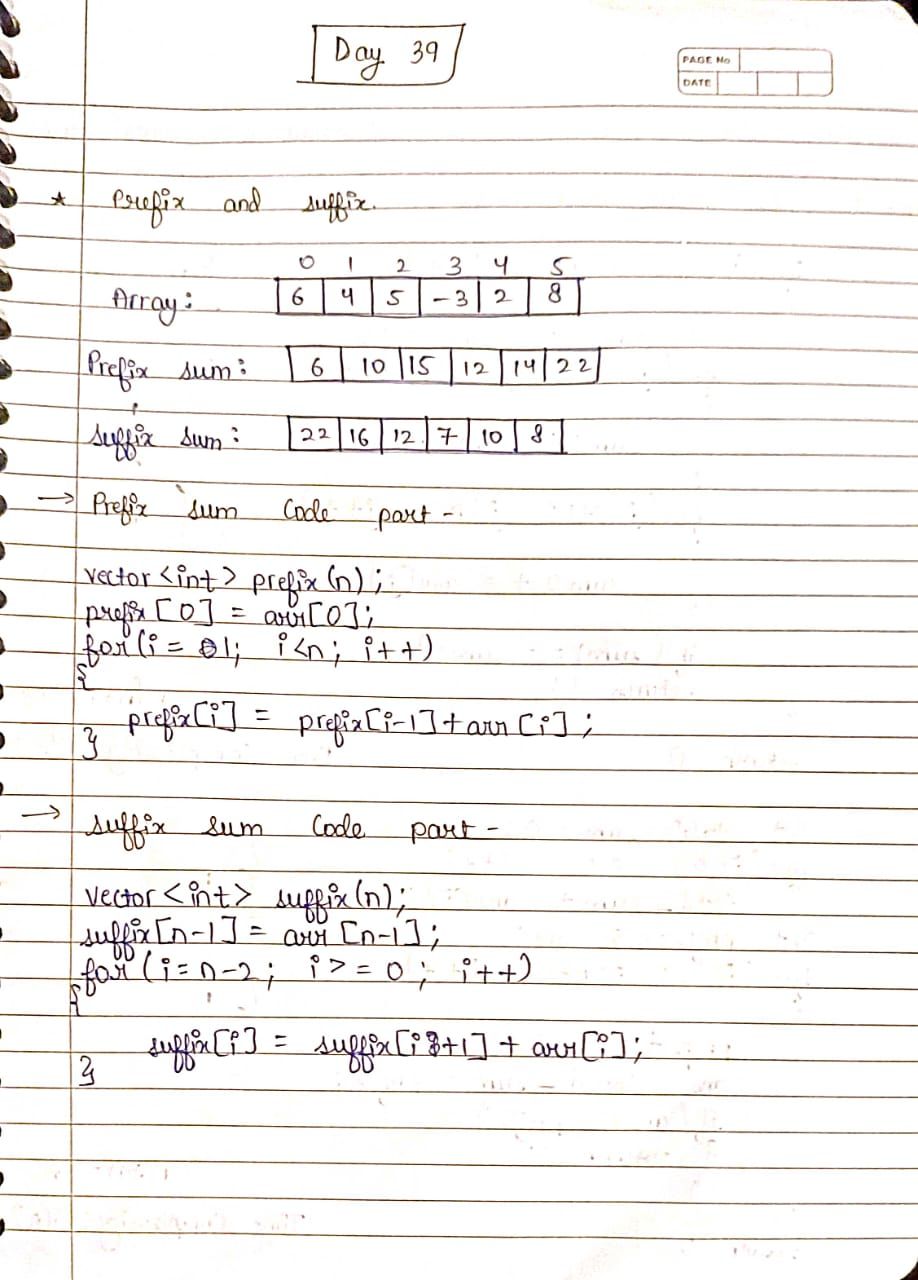 Day 39
PAGE No
DATE
* Prefix and suffix.
0 1 2 3 4 5
Array: 6 4 5 -3 2 8
Prefix sum: 6 10 15 12 14 22
suffix sum: 22 16 12 7 10 8
→ Prefix sum Code part -
vector <int> prefix (n);
prefix [0] = arr[0];
for (i = 1; i<n; i++)
{
prefix[i] = prefix[i-1]+arr [i];
}
→ suffix sum Code part -
vector <int> suffix (n);
suffix[n-1] = arr [n-1];
for (i=n-2; i>=0; i++)
{
suffix[i] = suffix[i+1] + arr[i];
}